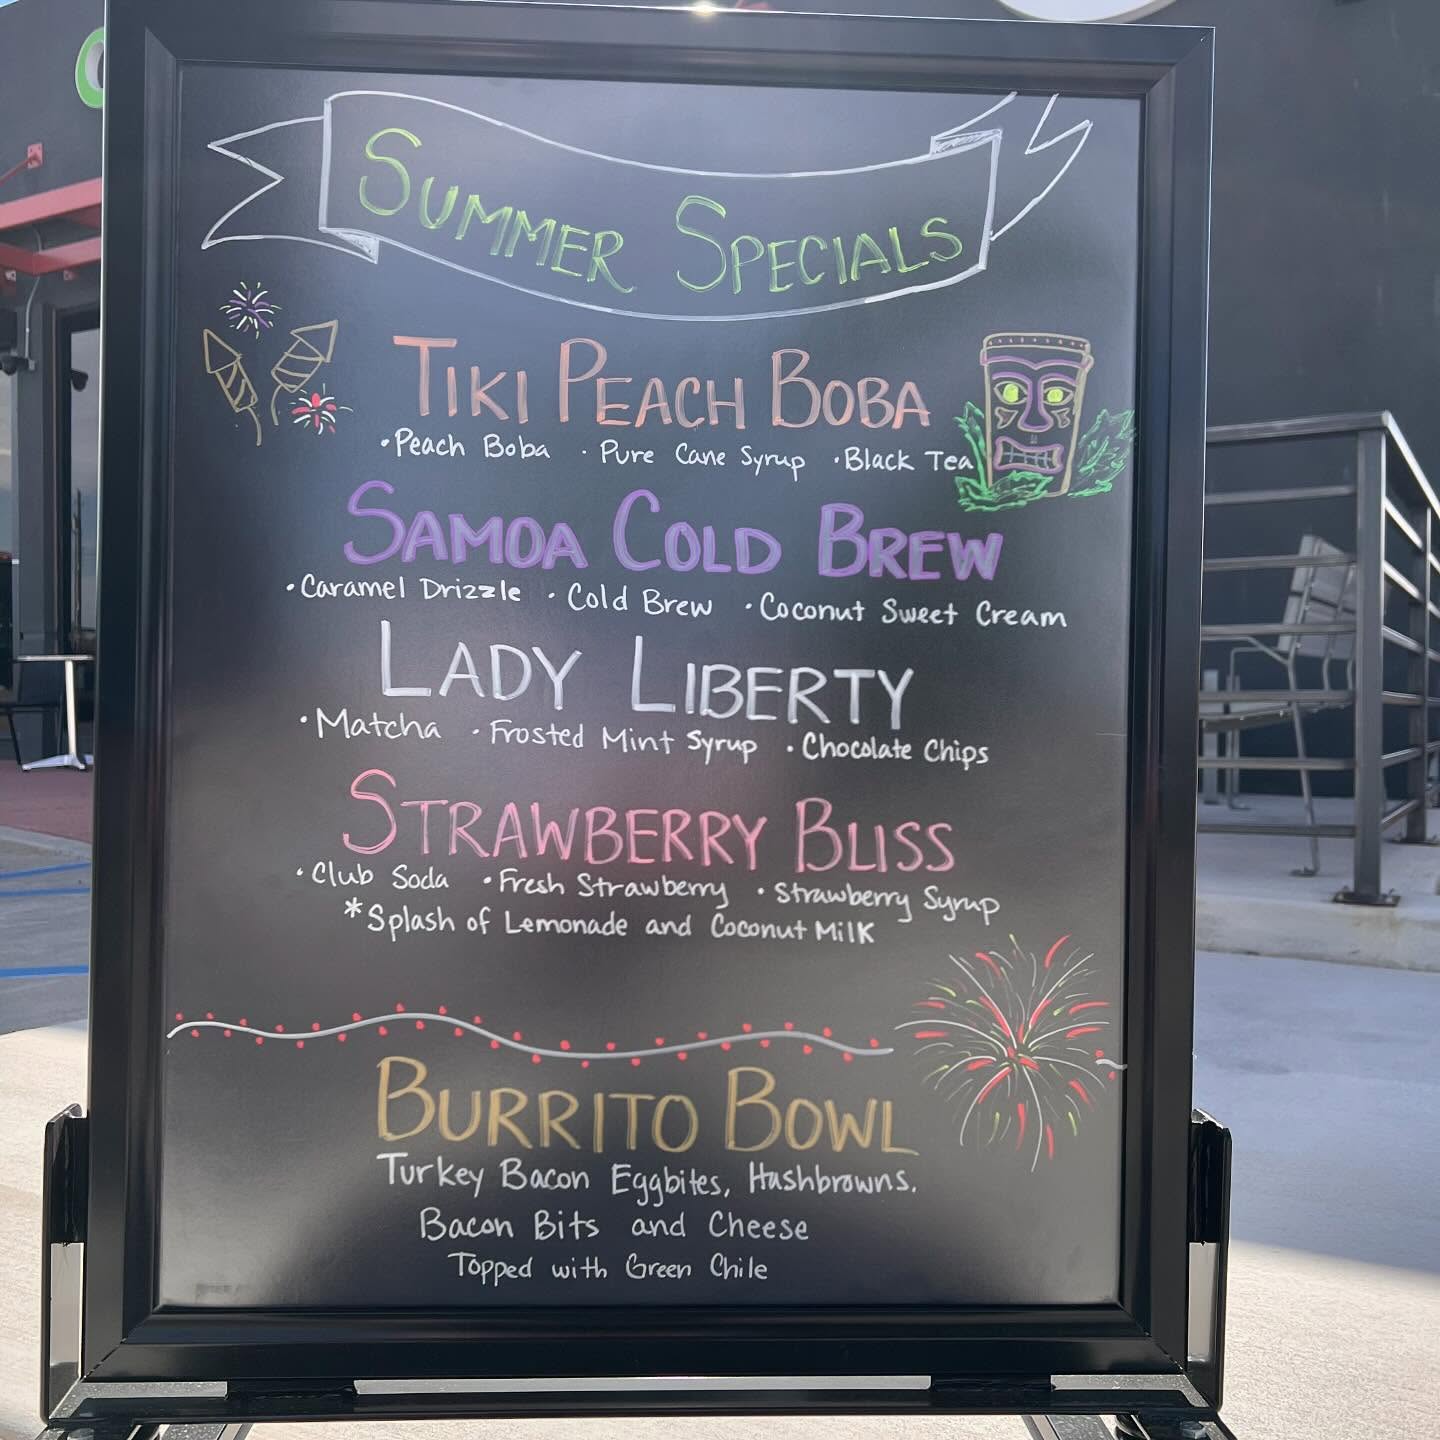 SUMMER SPECIALS
TIKI PEACH BOBA
• Peach Boba • Pure Cane Syrup • Black Tea
SAMOA COLD BREW
• Caramel Drizzle • Cold Brew • Coconut Sweet Cream
LADY LIBERTY
• Matcha • Frosted Mint Syrup • Chocolate Chips
STRAWBERRY BLISS
• Club Soda • Fresh Strawberry • Strawberry Syrup
*Splash of Lemonade and Coconut Milk
BURRITO BOWL
Turkey Bacon Eggbites, Hashbrowns.
Bacon Bits and Cheese
Topped with Green Chile